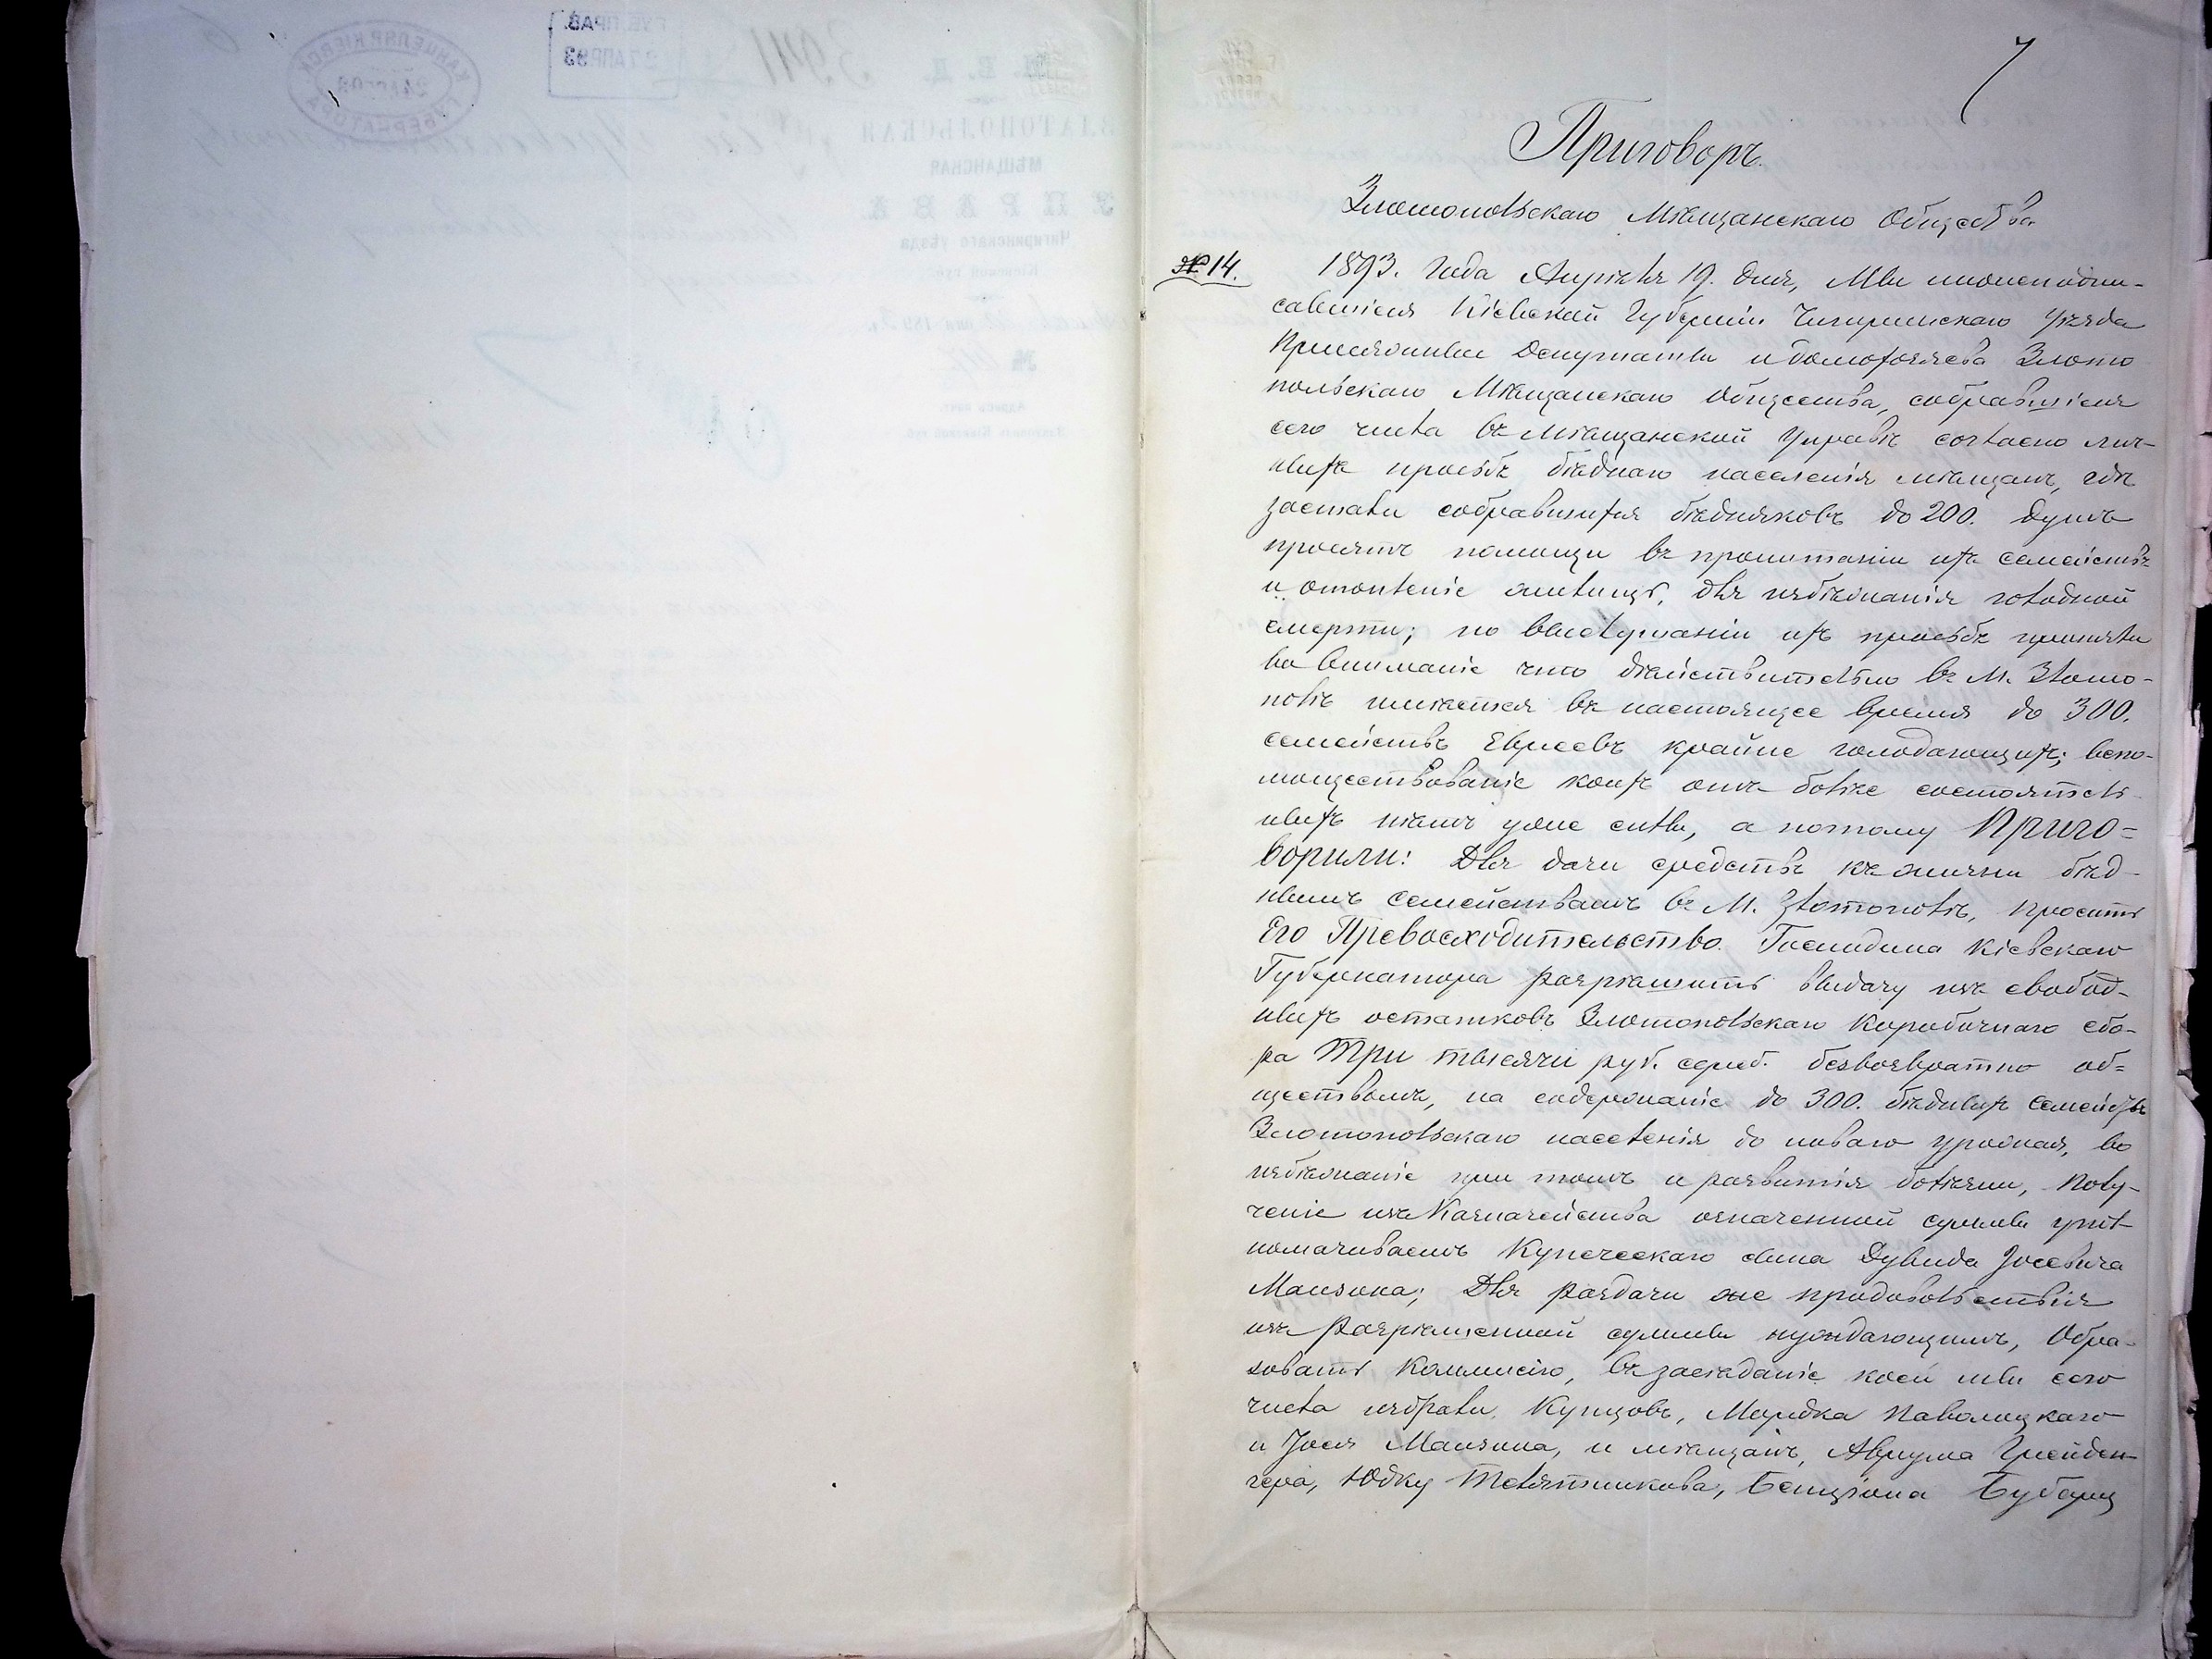 7
Приговоръ
Злотопольскаго Мѣщанскаго Общества
№ 14.
1893. Года Апрѣля 19. дня, Мы нижеподпи-
савшіеся Кіевской Губерніи Чигиринскаго Уѣзда
Присяжные Депутаты и домохозяева Злото
польскаго Мѣщанскаго Общества, собравшіеся
сего числа въ Мѣщанской Управѣ согласно лич-
ныхъ просьбъ бѣднаго населенія мѣщанъ, гдѣ
застали собравшихся бѣдняковъ до 200. душъ
просятъ помощи въ пропитаніи ихъ семействъ
и отопленіе жилищъ, для избѣжанія голодной
смерти; по выслушаніи ихъ просьбъ приняли
во вниманіе что дѣйствительно въ М. Злото-
полѣ имѣется въ настоящее время до 300.
семействъ Евреевъ крайне голодающихъ; вспо-
моществованіе коихъ отъ болѣе состоятель
ныхъ нѣтъ уже силы, а потому Приго-
ворили: Для дачи средствъ къ жизни бѣд-
нымъ семействамъ въ М. Злотополѣ, просить
Его Превосходительство Господина Кіевскаго
Губернатора разрѣшить выдачу изъ свобод-
ныхъ остатковъ Злотопольскаго Коробочнаго сбо-
ра Три тысячи руб. сереб. безвозвратно об-
ществомъ, на содержаніе до 300. бѣдныхъ Семействъ
Злотопольскаго населенія до новаго урожая, во
избѣжаніе при томъ и развитія болѣзни, Полу-
ченіе изъ Казначейства означенной суммы упол-
номачиваемъ Купеческаго сына Дувида Іосевича
Манзона; Для раздачи же продовольствія
изъ разрѣшенной суммы нуждающимъ, Обра-
зовать Коммисію, въ засѣданіе коей мы сего
числа избрали, Купцовъ, Мордка Паволоцкаго
и Іося Манзона, и мѣщанъ, Аврума Грейден-
гера, Юдку Телятникова, Бенціона